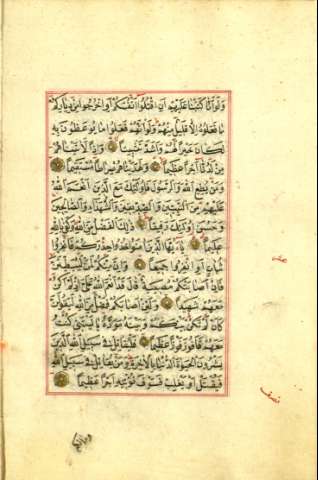 وَلَوْ أَنَّا كَتَبْنَا عَلَيْهِمْ أَنِ اقْتُلُوا أَنْفُسَكُمْ أَوِ اخْرُجُوا مِنْ دِيَارِكُمْ
مَا فَعَلُوهُ إِلَّا قَلِيلٌ مِنْهُمْ وَلَوْ أَنَّهُمْ فَعَلُوا مَا يُوعَظُونَ بِهِ
لَكَانَ خَيْرًا لَهُمْ وَأَشَدَّ تَثْبِيتًا وَإِذًا لَآتَيْنَاهُمْ
مِنْ لَدُنَّا أَجْرًا عَظِيمًا وَلَهَدَيْنَاهُمْ صِرَاطًا مُسْتَقِيمًا
وَمَنْ يُطِعِ اللهَ وَالرَّسُولَ فَأُولَئِكَ مَعَ الَّذِينَ أَنْعَمَ اللهُ
عَلَيْهِمْ مِنَ النَّبِيِّينَ وَالصِّدِّيقِينَ وَالشُّهَدَاءِ وَالصَّالِحِينَ
وَحَسُنَ أُولَئِكَ رَفِيقًا ذَلِكَ الْفَضْلُ مِنَ اللهِ وَكَفَى بِاللهِ
عَلِيمًا يَا أَيُّهَا الَّذِينَ آمَنُوا خُذُوا حِذْرَكُمْ فَانْفِرُوا
ثُبَاتٍ أَوِ انْفِرُوا جَمِيعًا وَإِنَّ مِنْكُمْ لَمَنْ لَيُبَطِّئَنَّ
فَإِنْ أَصَابَتْكُمْ مُصِيبَةٌ قَالَ قَدْ أَنْعَمَ اللهُ عَلَيَّ إِذْ لَمْ أَكُنْ
مَعَهُمْ شَهِيدًا وَلَئِنْ أَصَابَكُمْ فَضْلٌ مِنَ اللهِ لَيَقُولَنَّ
كَأَنْ لَمْ تَكُنْ بَيْنَكُمْ وَبَيْنَهُ مَوَدَّةٌ يَا لَيْتَنِي كُنْتُ
مَعَهُمْ فَأَفُوزَ فَوْزًا عَظِيمًا فَلْيُقَاتِلْ فِي سَبِيلِ اللهِ الَّذِينَ
يَشْرُونَ الْحَيٰوةَ الدُّنْيَا بِالْآخِرَةِ وَمَنْ يُقَاتِلْ فِي سَبِيلِ اللهِ
فَيُقْتَلْ أَوْ يَغْلِبْ فَسَوْفَ نُؤْتِيهِ أَجْرًا عَظِيمًا
نصف
ومالكم